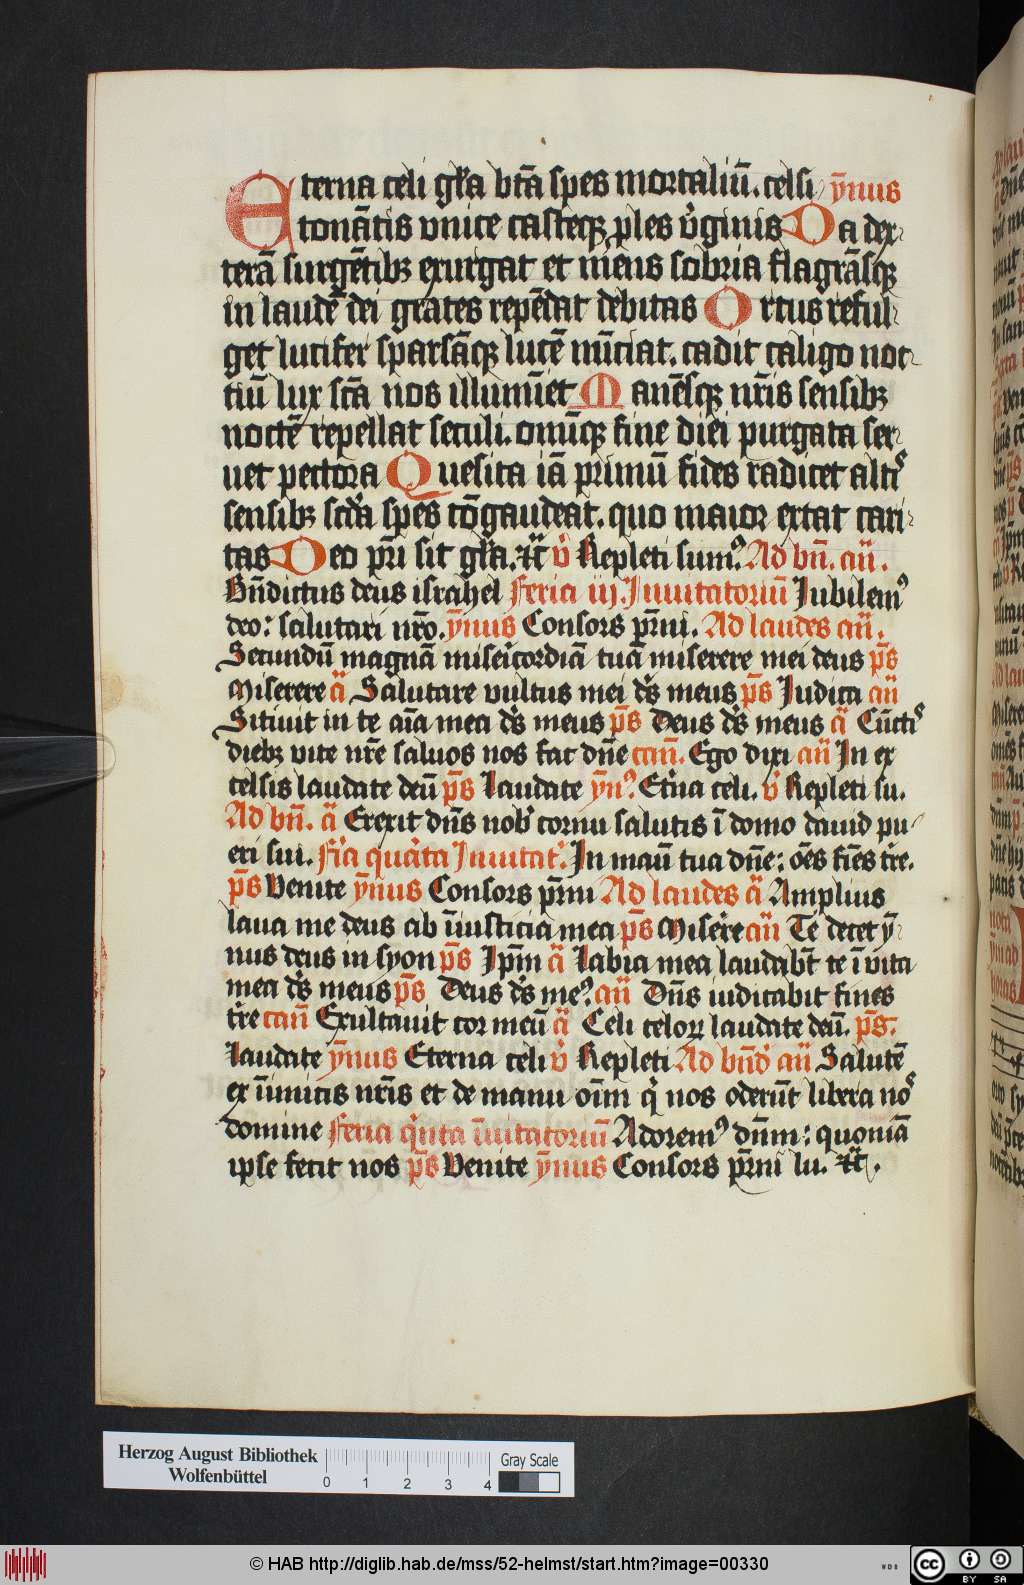 Eterna celi gl̄a btā spes mortaliū. celsi ẏnus
tonātis vnice casteqꝫ ples v̓ginis Da dex-
terā surgētibꝫ exurgat et mēns sobria flagrāsqꝫ
in laudē dei grates repēdat debitas Ortus reful-
get lucifer sparsāqꝫ lucē nūciat. cadit caligo noc-
tiū lux sctā nos illumīet Manēsqꝫ nr̄is sensibꝫ
noctē repellat seculi. omīqꝫ fine diei purgata ser-
uet pectora Quesita iā primū fides radicet altꝰ
sensibꝫ scd̓a spes cōgaudeat. quo maior extat cari-
tas Deo pr̄i sit gl̄a. ⁊c̄ v̓ Repleti sumꝰ Ad bn̄. an̄.
Bn̄dictus deus israhel Feria iij. Inuitatoriū Iubilemꝰ
deo: salutari nr̄o. ẏnus Consors pr̄ni. Ad laudes an̄.
Secundū magnā mise̓icordiā tuā miserere mei deus p̄s
Miserere ā Salutare vultus mei d̄s meus p̄s Iudica an̄
Sitiuit in te aīa mea d̄s meus p̄s Deus d̄s meus ā Cūctꝭ
diebꝫ vite nr̄e saluos nos fac dn̄e can̄. Ego dixi an̄ In ex
celsis laudate deū p̄s Laudate ẏnꝰ Et̓na celi. v̓ Repleti su.
Ad bn̄. ā Erexit dn̄s nob̓ cornu salutis ī domo dauid pu-
eri sui. Fr̓a qua̓ta Inuitat̓. In manū tua dn̄e: oēs fīes tr̄e.
p̄s Venite ẏnus Consors pr̄ni Ad laudes ā Amplius
laua me deus ab īiusticia mea p̄s Mise̓re an̄ Te decet ẏ-
nus deus in syon p̄s Ip̄m ā Labia mea laudabt̄ te ī vita
mea d̄s meus p̄s Deus d̄s meꝰ an̄ Dn̄s iudicabit fines
tr̄e can̄ Exultauit cor meū ā Celi celoꝝ laudate deū. p̄s.
Laudate ẏnus Eterna celi v̓ Repleti Ad bn̄d̓ an̄ Salutē
ex īimicis nr̄is et de manu oīm q̓ nos oderūt libera noꝰ
domine Feria q̓nta īuitatoriū Adoremꝰ dn̄m: quoniā
ipse fecit nos p̄s Venite ẏnus Consors pr̄ni lu. ⁊c̄.
Herzog August Bibliothek
Wolfenbüttel
0 1 2 3 4
Gray Scale
© HAB http://diglib.hab.de/mss/52-helmst/start.htm?image=00330
WDB
cc BY SA